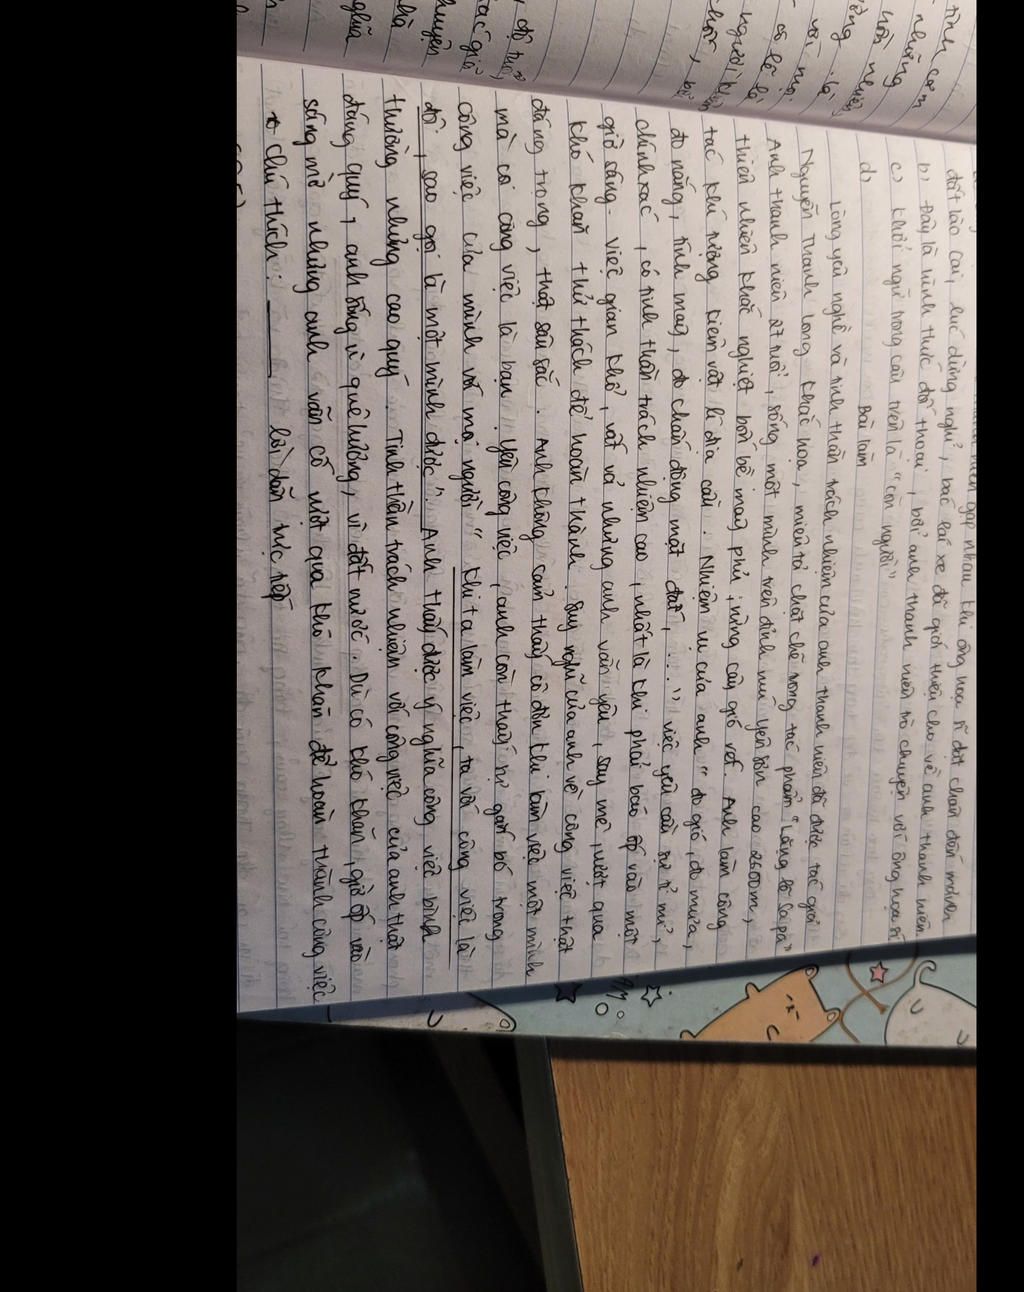 gặp nhau khi ông họa sĩ đặt chân đến mảnh
đất Lào Cai, lúc dừng nghỉ, bác lái xe đã giới thiệu cho về anh thanh niên.
b, Đây là hình thức đối thoại, bởi anh thanh niên trò chuyện với ông họa sĩ
c, Khởi ngữ trong câu trên là "còn người"
d,
Bài làm
Lòng yêu nghề và tinh thần trách nhiệm của anh thanh niên đã được tác giả
Nguyễn Thanh Long khắc họa, miêu tả chặt chẽ trong tác phẩm "Lặng lẽ Sa pa"
Anh thanh niên 27 tuổi, sống một mình trên đỉnh núi Yên Sơn cao 2600m,
thiên nhiên khắc nghiệt bốn bề mây phủ, rừng cây gió rét. Anh làm công
tác khí tượng kiêm vật lí địa cầu. Nhiệm vụ của anh "đo gió, đo mưa,
đo nắng, tính mây, đo chấn động mặt đất, ..." việc yêu cầu sự tỉ mỉ,
chính xác, có tinh thần trách nhiệm cao, nhất là khi phải báo ốp vào một
giờ sáng. Việc gian khổ, vất vả nhưng anh vẫn yêu, say mê, vượt qua
khó khăn thử thách để hoàn thành. Suy nghĩ của anh về công việc thật
đáng trọng, thật sâu sắc. Anh không cảm thấy cô đơn khi làm việc một mình
mà coi công việc là bạn. Yêu công việc, anh còn thấy sự gắn bó trong
công việc của mình với mọi người " Khi ta làm việc, ta với công việc là
đôi, sao gọi là một mình được" Anh thấy được ý nghĩa công việc bình
thường nhưng cao quý. Tinh thần trách nhiệm với công việc của anh thật
đáng quý, anh sống vì quê hương, vì đất nước. Dù có khó khăn, giờ ốp vào
sáng mờ nhưng anh vẫn cố vượt qua khó khăn để hoàn thành công việc
* chú thích: ____ lời dẫn trực tiếp
tình cảm
những
người
chốn,
đồ
tác giả
nhà
nghĩa